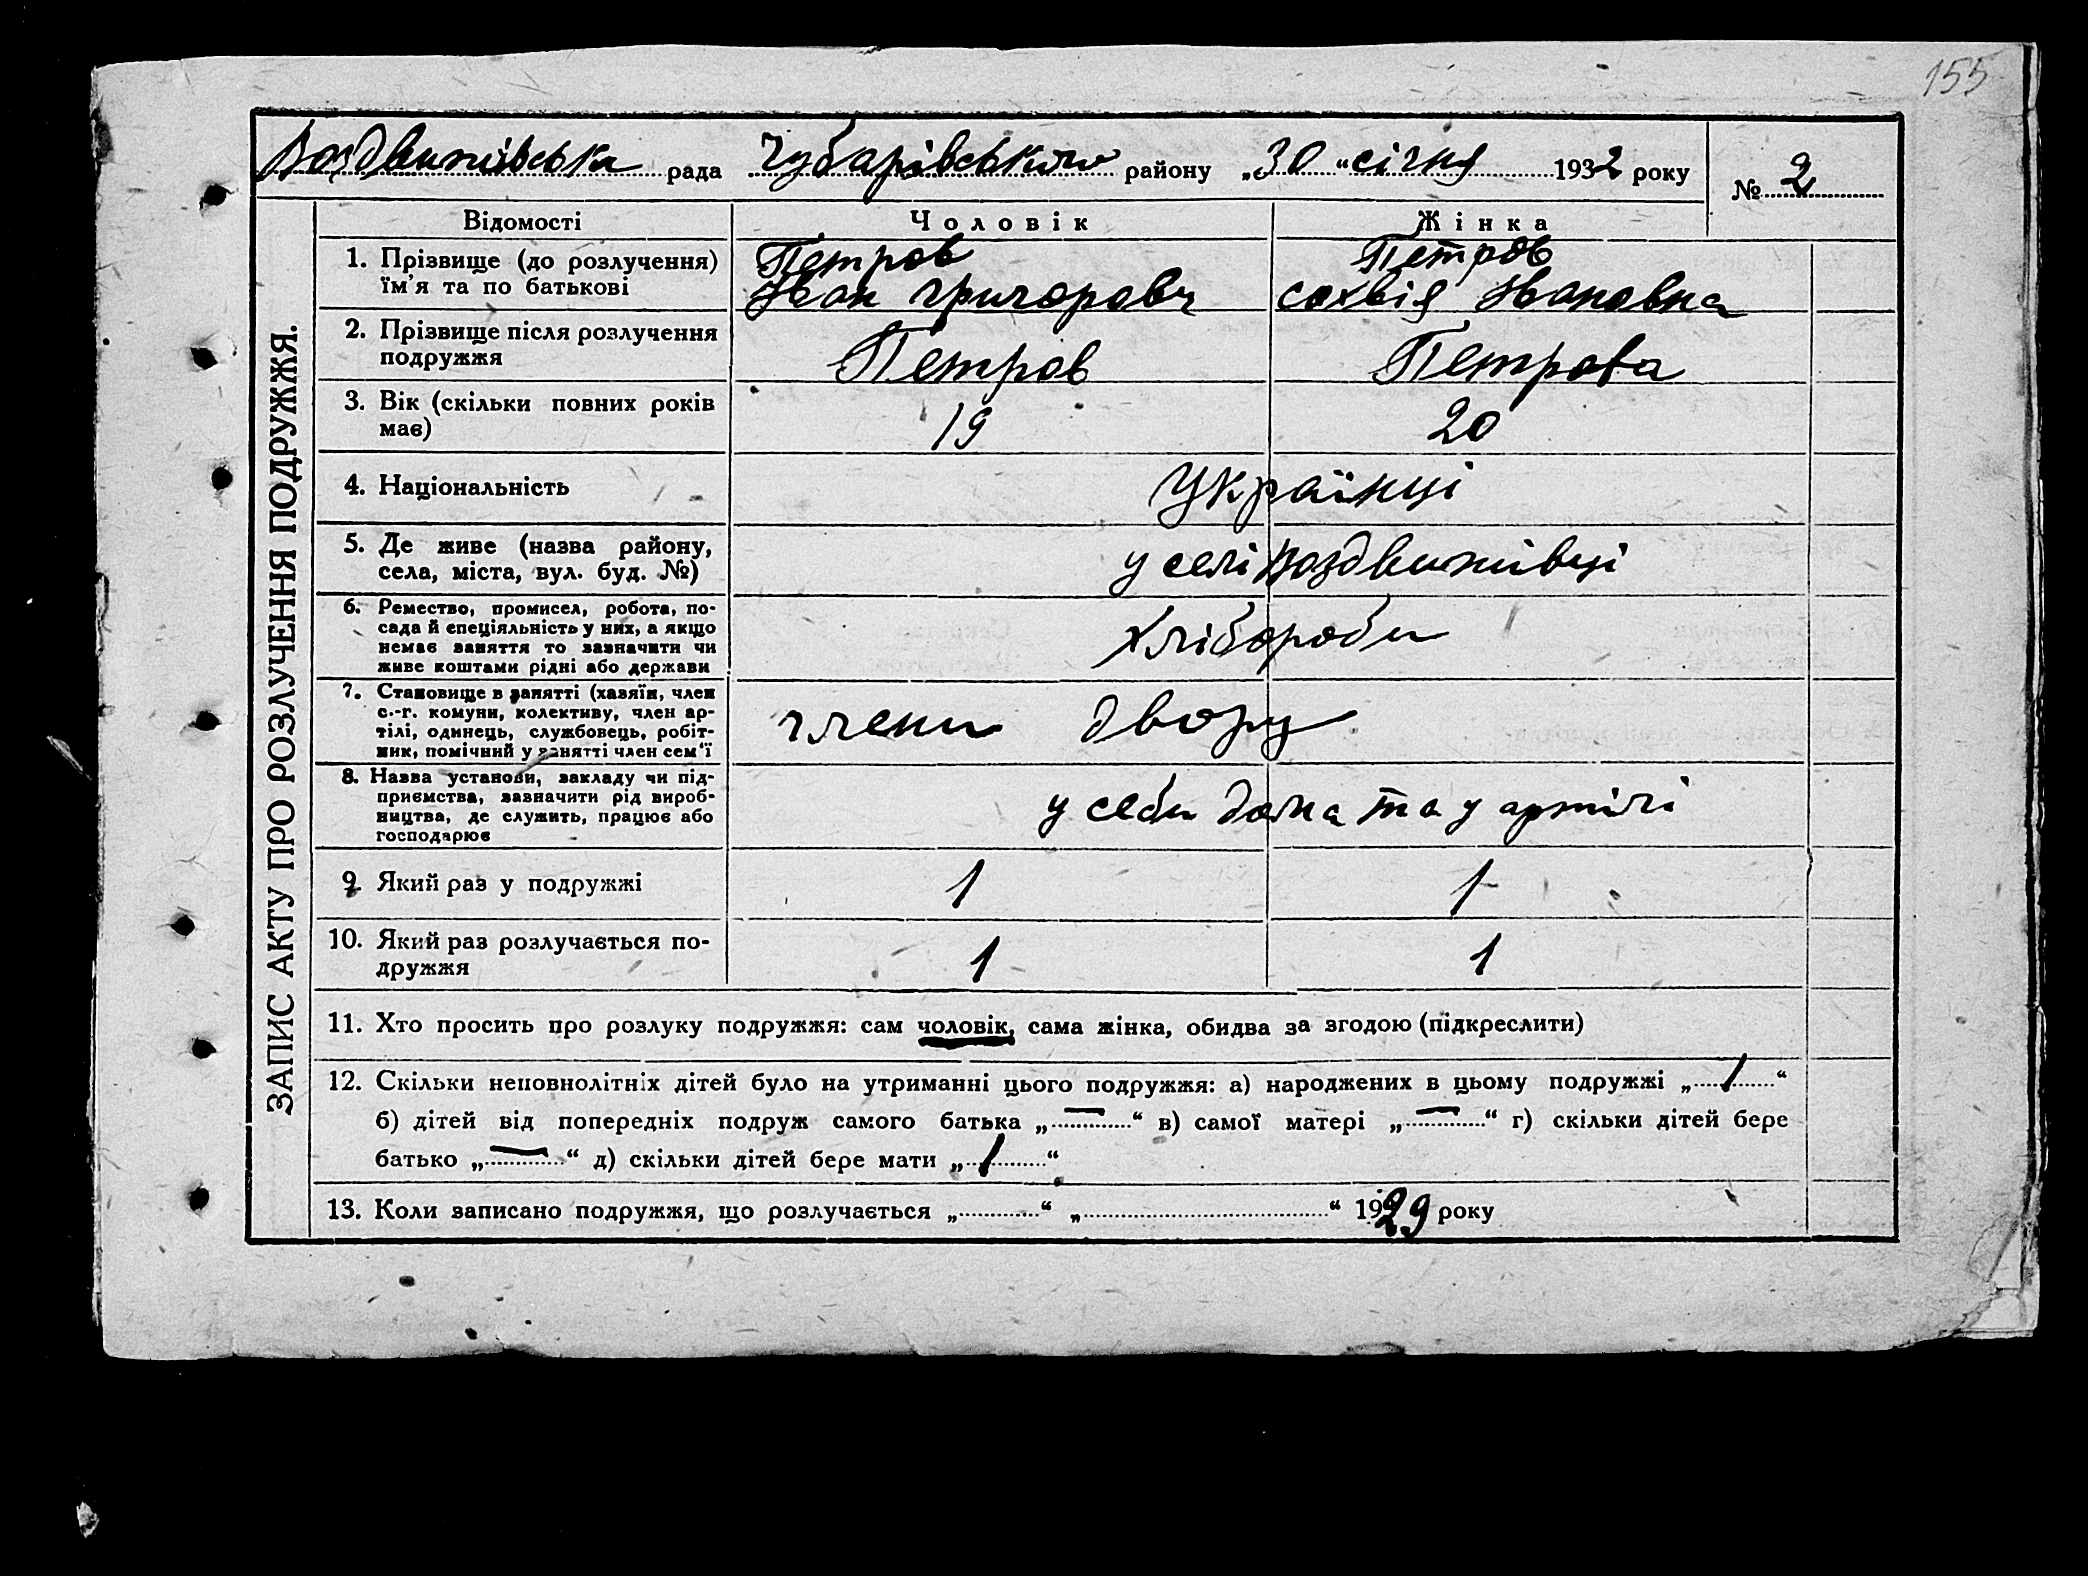 155
Воздвижівська рада Чубарівського району „30“ січня 1932 року № 2
ЗАПИС АКТУ ПРО РОЗЛУЧЕННЯ ПОДРУЖЖЯ.
Відомості Чоловік Жінка
1. Прізвище (до розлучення) Петров Петров
ім’я та по батькові Іван Григорович Сохвія Івановна
2. Прізвище після розлучення
подружжя Петров Петрова
3. Вік (скільки повних років
має) 19 20
4. Національність Українці
5. Де живе (назва району,
села, міста, вул. буд. №) у селі Воздвижівці
6. Ремество, промисел, робота, по-
сада й спеціяльність у них, а якщо
немає заняття то зазначити чи
живе коштами рідні або держави
Хлібороби
7. Становище в занятті (хазяїн, член
с.-г. комуни, колективу, член ар-
тілі, одинець, службовець, робіт-
ник, помічний у занятті член сем‘ї
члени двору
8. Назва установи, закладу чи під-
приємства, зазначити рід вироб-
ництва, де служить, працює або
господарює
у себи дома та у артілі
9. Який раз у подружжі 1 1
10. Який раз розлучається по-
дружжя 1 1
11. Хто просить про розлуку подружжя: сам чоловік, сама жінка, обидва за згодою (підкреслити)
12. Скільки неповнолітніх дітей було на утриманні цього подружжя: а) народжених в цьому подружжі „1“
б) дітей від попередніх подруж самого батька „—“ в) самої матері „—“ г) скільки дітей бере
батько „—“ д) скільки дітей бере мати „1“
13. Коли записано подружжя, що розлучається „ “ „ “ 1929 року